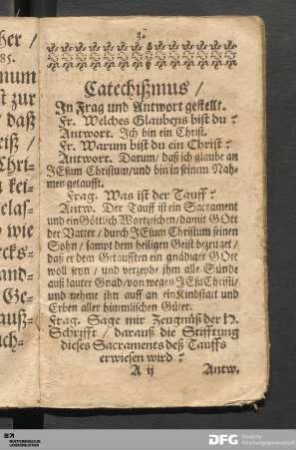 her /
85.
num
st zur
daß
eiß /
Chri-
kei-
elas-
wie
ecks-
and-
Ge-
auß-
uch-
3.
Catechißmus /
In Frag und Antwort gestellt.
Fr. Welches Glaubens bist du?
Antwort. Ich bin ein Christ.
Fr. Warum bist du ein Christ?
Antwort. Darum / daß ich glaube an
JEsum Christum / und bin in seinem Nah-
men getaufft.
Frag. Was ist der Tauff?
Antw. Der Tauff ist ein Sacrament
und ein Göttlich Wortzeichen / damit GOtt
der Vatter / durch JEsum Christum seinen
Sohn / sampt dem heiligen Geist bezeuget /
daß er dem Getaufften ein gnädiger GOtt
woll seyn / und verzeyhe jhm alle Sünde
auß lauter Gnad / von wegen JEsu Christi /
und nehme jhn auff an ein Kindstatt und
Erben aller himmlischen Güter.
Frag. Sage mir Zeugnüß der H.
Schrifft / darauß die Stifftung
dieses Sacraments deß Tauffs
erwiesen wird?
A ij Antw.
DFG Deutsche
Forschungsgemeinschaft